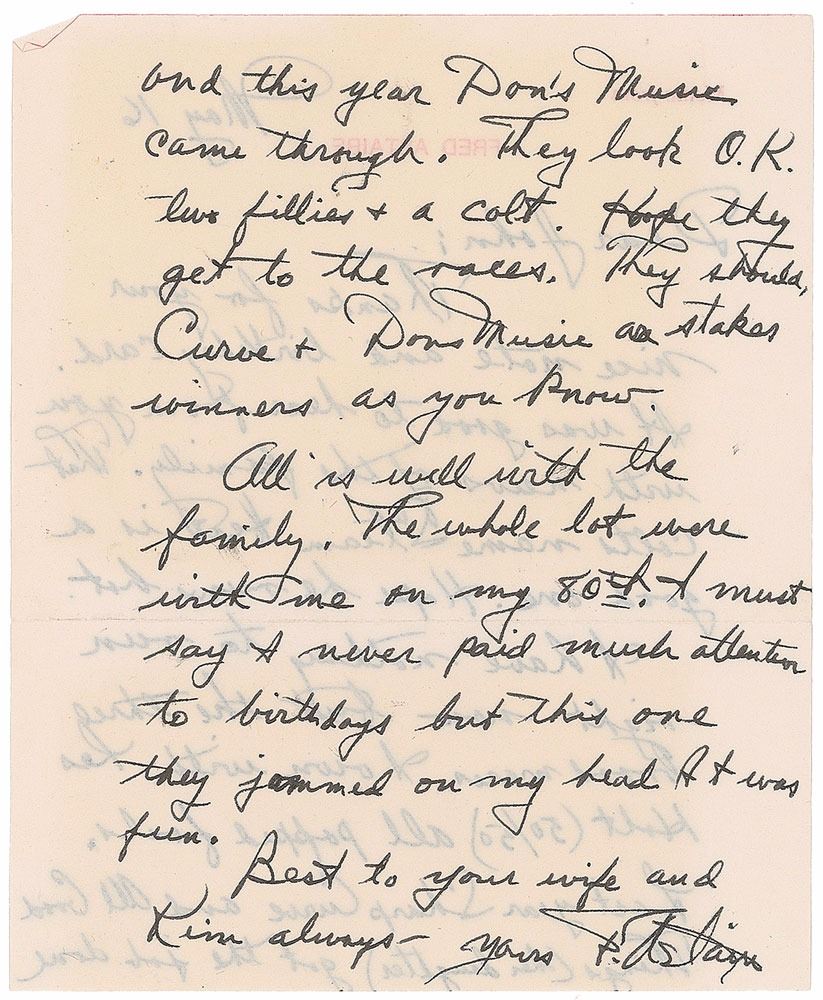 and this year Don's Music
came through. They look O.K.
two fillies + a colt. Hope they
get to the races. They should,
Curve + Dons Music as stakes
winners as you know.
All is well with the
family. The whole lot were
with me on my 80th. I must
say I never paid much attention
to birthdays but this one
they jammed on my head & it was
fun.
Best to your wife and
Kim always — yours F. Astaire